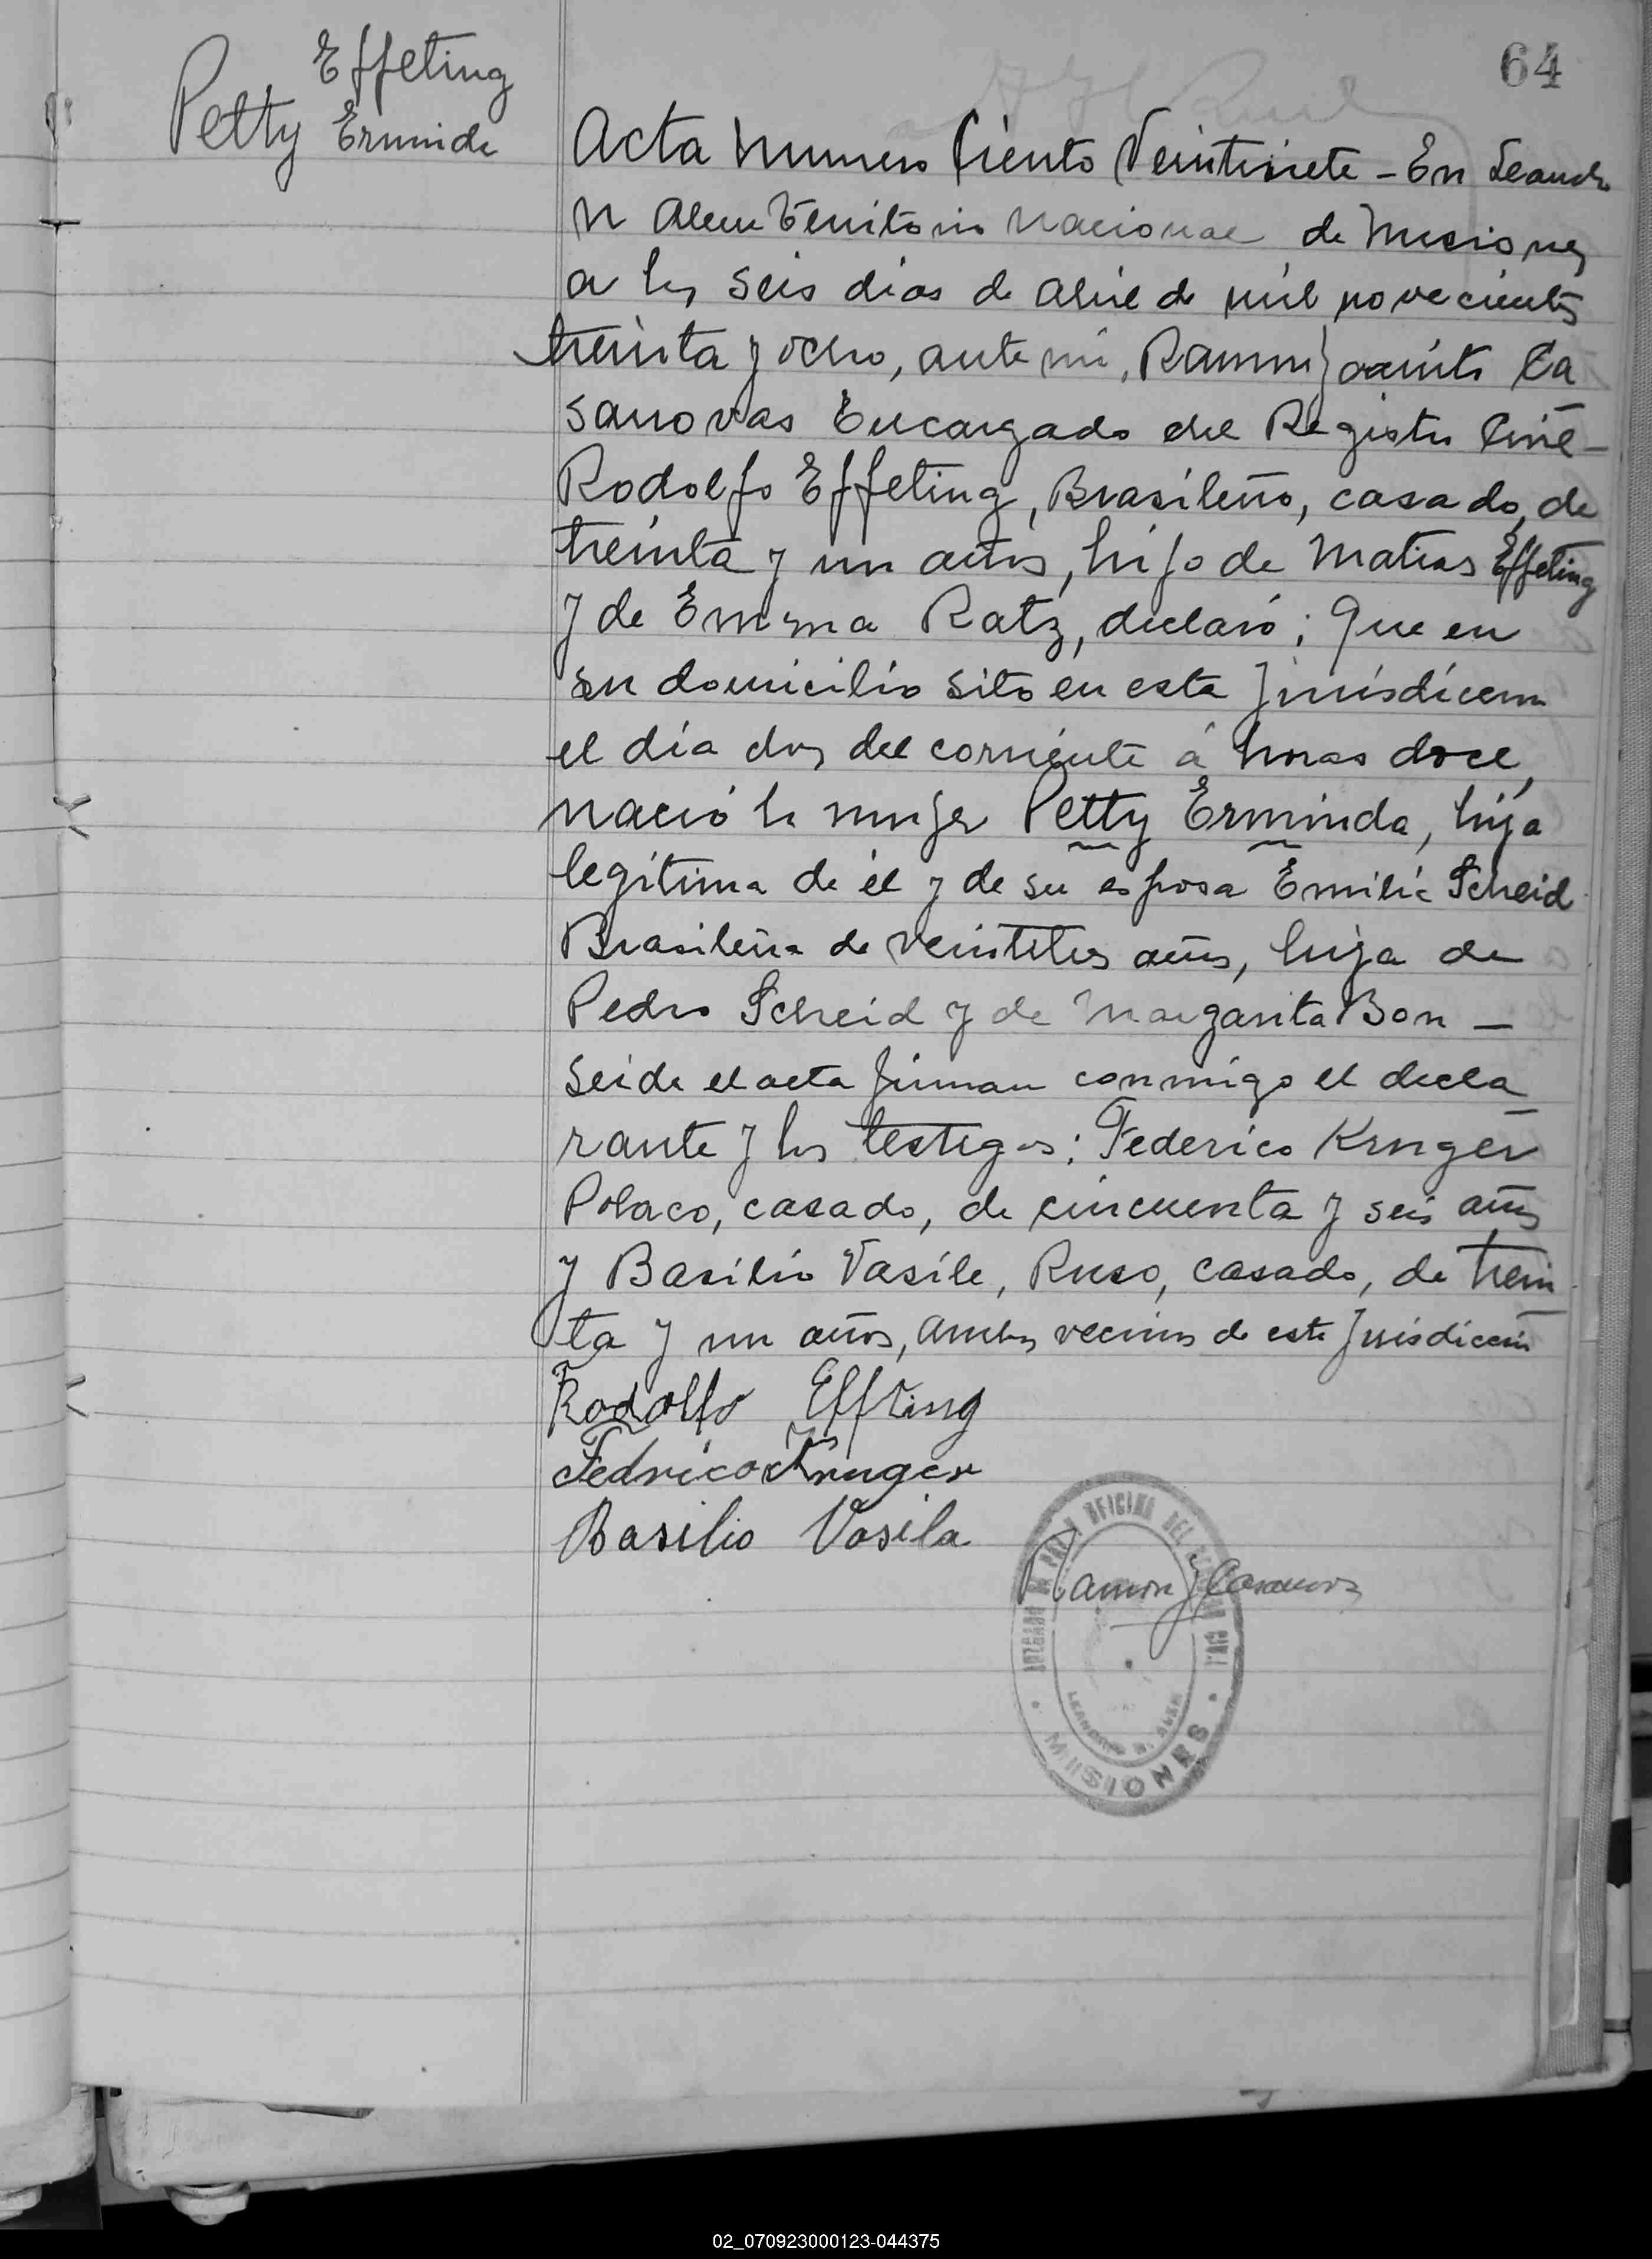 64
Effeting
Petty Erminda
Acta Numero Ciento Veintisiete - En Leandro
N Alem Territorio Nacional de Misiones
a los seis dias de Abril de mil novecientos
treinta y ocho, ante mi, Ramon Jacinto Ca
sanovas Encargado del Registro Civil -
Rodolfo Effeting, Brasileño, casado, de
treinta y un años, hijo de Matias Effeting
y de Emma Ratz, declaró; Que en
su domicilio sito en esta Jurisdiccion
el día dos del corriente á horas doce,
nació la mujer Petty Erminda, hija
legítima de él y de su esposa Emilia Scheid
Brasileña de veintitres años, hija de
Pedro Scheid y de Margarita Bon -
Leida el acta firman conmigo el decla
rante y los testigos: Federico Kruger
Polaco, casado, de cincuenta y seis años
y Basilio Vasile, Ruso, casado, de trein
ta y un años, ambos vecinos de esta Jurisdiccion
Rodolfo Effting
Fedrico Kruger
Basilio Vasila
Ramon J Casanovas
JUZGADO DE PAZ Y OFICINA DEL REGISTRO CIVIL
LEANDRO N. ALEM
MISIONES
02_070923000123-044375